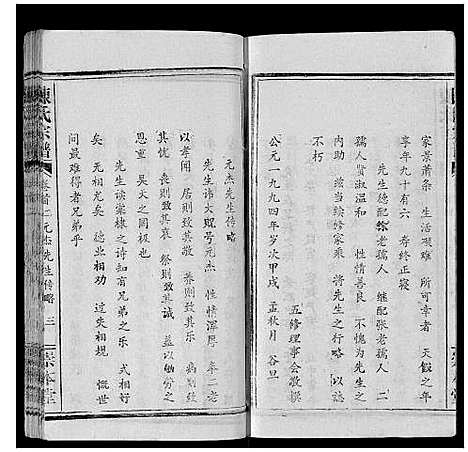 家景萧条 生活艰难 所可幸者 天假之年
享年九十有六 寿终正寝
先生德配徐老孺人 继配张老孺人 二
孺人贤淑温和 性情善良 不愧为先生之
内助 兹当续修家乘 将先生之行略 以誌
不朽
五修理事会敬撰
公元一九九四年岁次甲戌 孟秋月 谷旦
元杰先生传略
先生讳大 号元杰 性情浑厚 奉二老
以孝闻 居则致其敬 养则致其乐 病则致
其忧 丧则致其哀 祭则致其 益以勉劳之
恩重 昊天之罔极也
先生读棠棣之诗知有兄弟之乐 式相好
矣 无相尤矣 德业相劝 过失相规 慨世
间最难得者兄弟乎
陳氏宗譜 卷首二 元杰先生传略 三